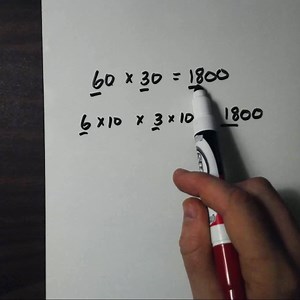 60 × 30 = 1800
6 × 10 × 3 × 10 1800